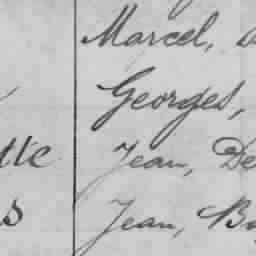 Marcel,
Georges,
tte Jean, De
s Jean, Ba